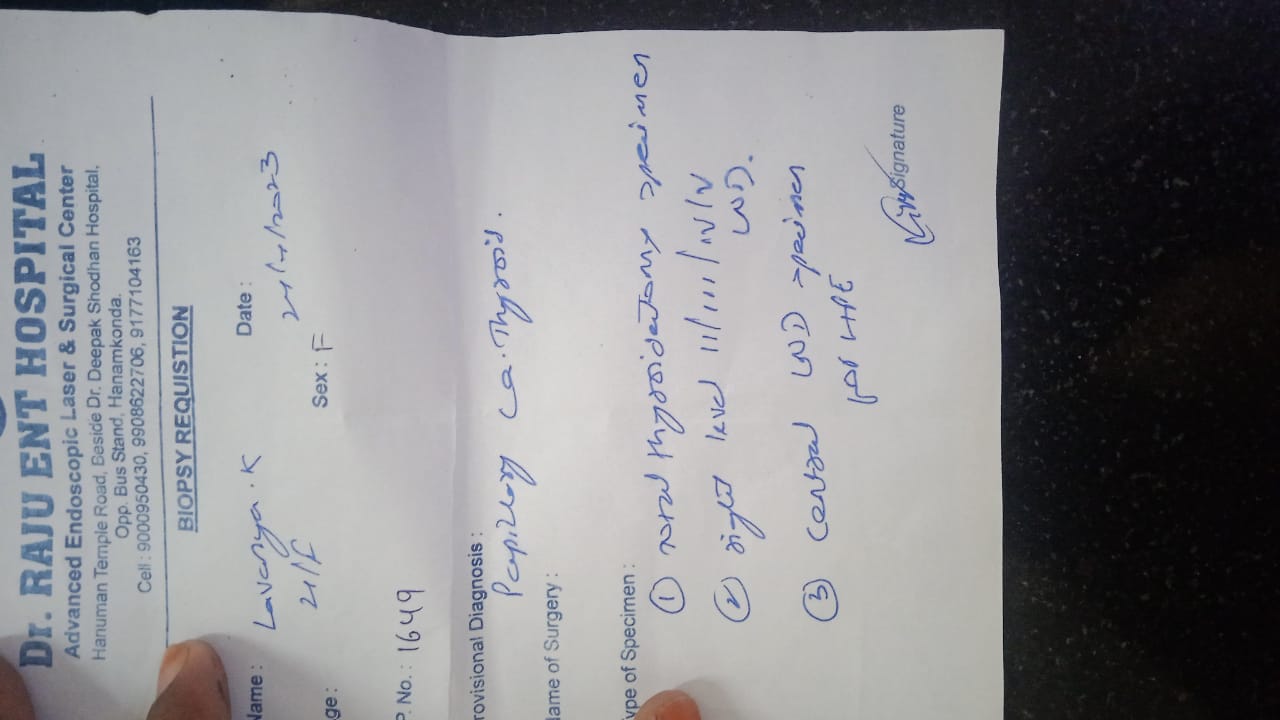 Dr. RAJU ENT HOSPITAL
Advanced Endoscopic Laser & Surgical Center
Hanuman Temple Road, Beside Dr. Deepak Shodhan Hospital,
Opp. Bus Stand, Hanamkonda.
Cell : 9000950430, 9908622706, 9177104163
BIOPSY REQUISTION
Name : Lavanya . K Date :
ge : Sex : F
P. No. : 1649
rovisional Diagnosis :
Papillary Ca. Thyroid.
Name of Surgery :
ype of Specimen :
① Total thyroidectomy specimen
② right level II/III/IV/V
③ Central specimen
for HPE
Signature